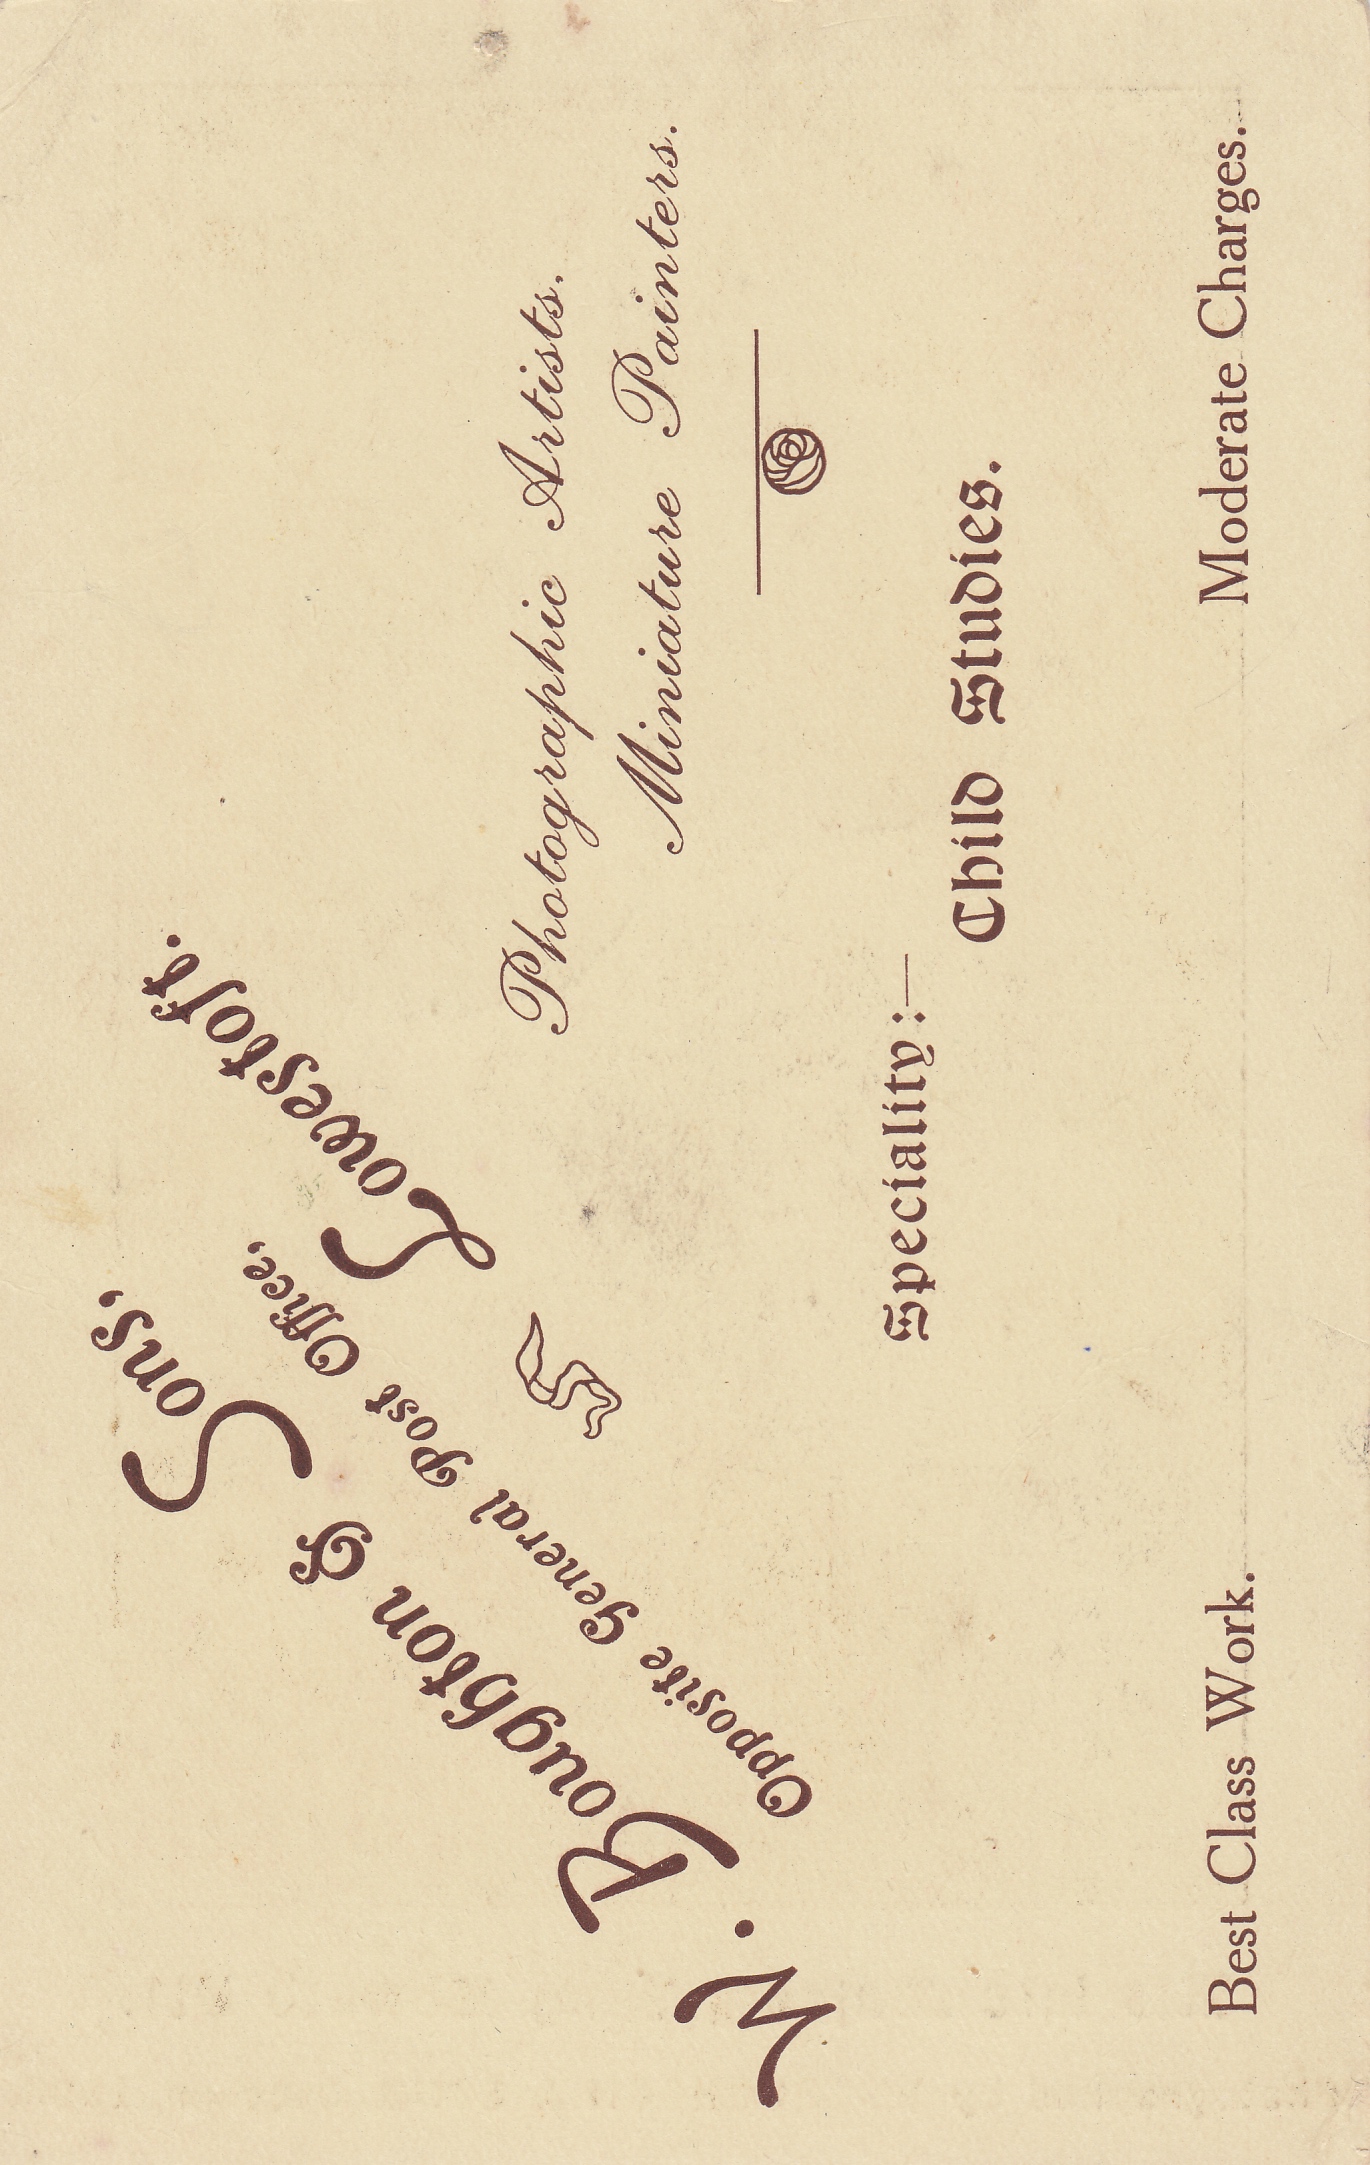 W. Boughton & Sons,
Opposite General Post Office,
Lowestoft.
Photographic Artists.
Miniature Painters.
Speciality:—
Child Studies.
Best Class Work.
Moderate Charges.